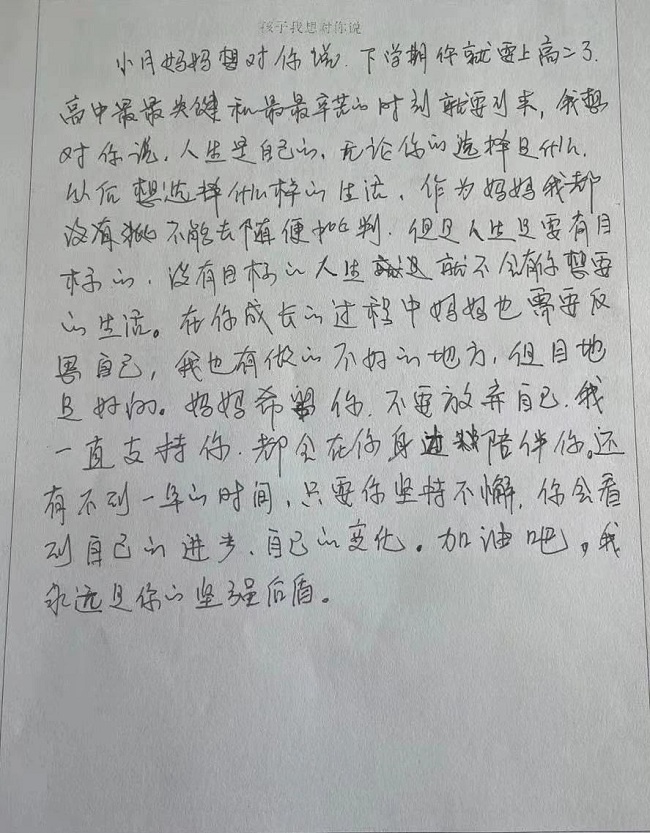 孩子我想对你说
小月妈妈想对你说.下学期你就要上高二了.
高中最最关键和最最辛苦的时刻就要到来,我想
对你说,人生是自己的,无论你的选择是什么.
以后想选择什么样的生活,作为妈妈我都
没有 不能去随便批判.但是人生是要有目
标的.没有目标的人生就不会有你想要
的生活。在你成长的过程中妈妈也需要反
思自己,我也有做的不好的地方,但目地
是好的。妈妈希望你.不要放弃自己.我
一直支持你.都会在你身边 陪伴你。还
有不到一年的时间,只要你坚持不懈,你会看
到自己的进步、自己的变化。加油吧,我
永远是你的坚强后盾。